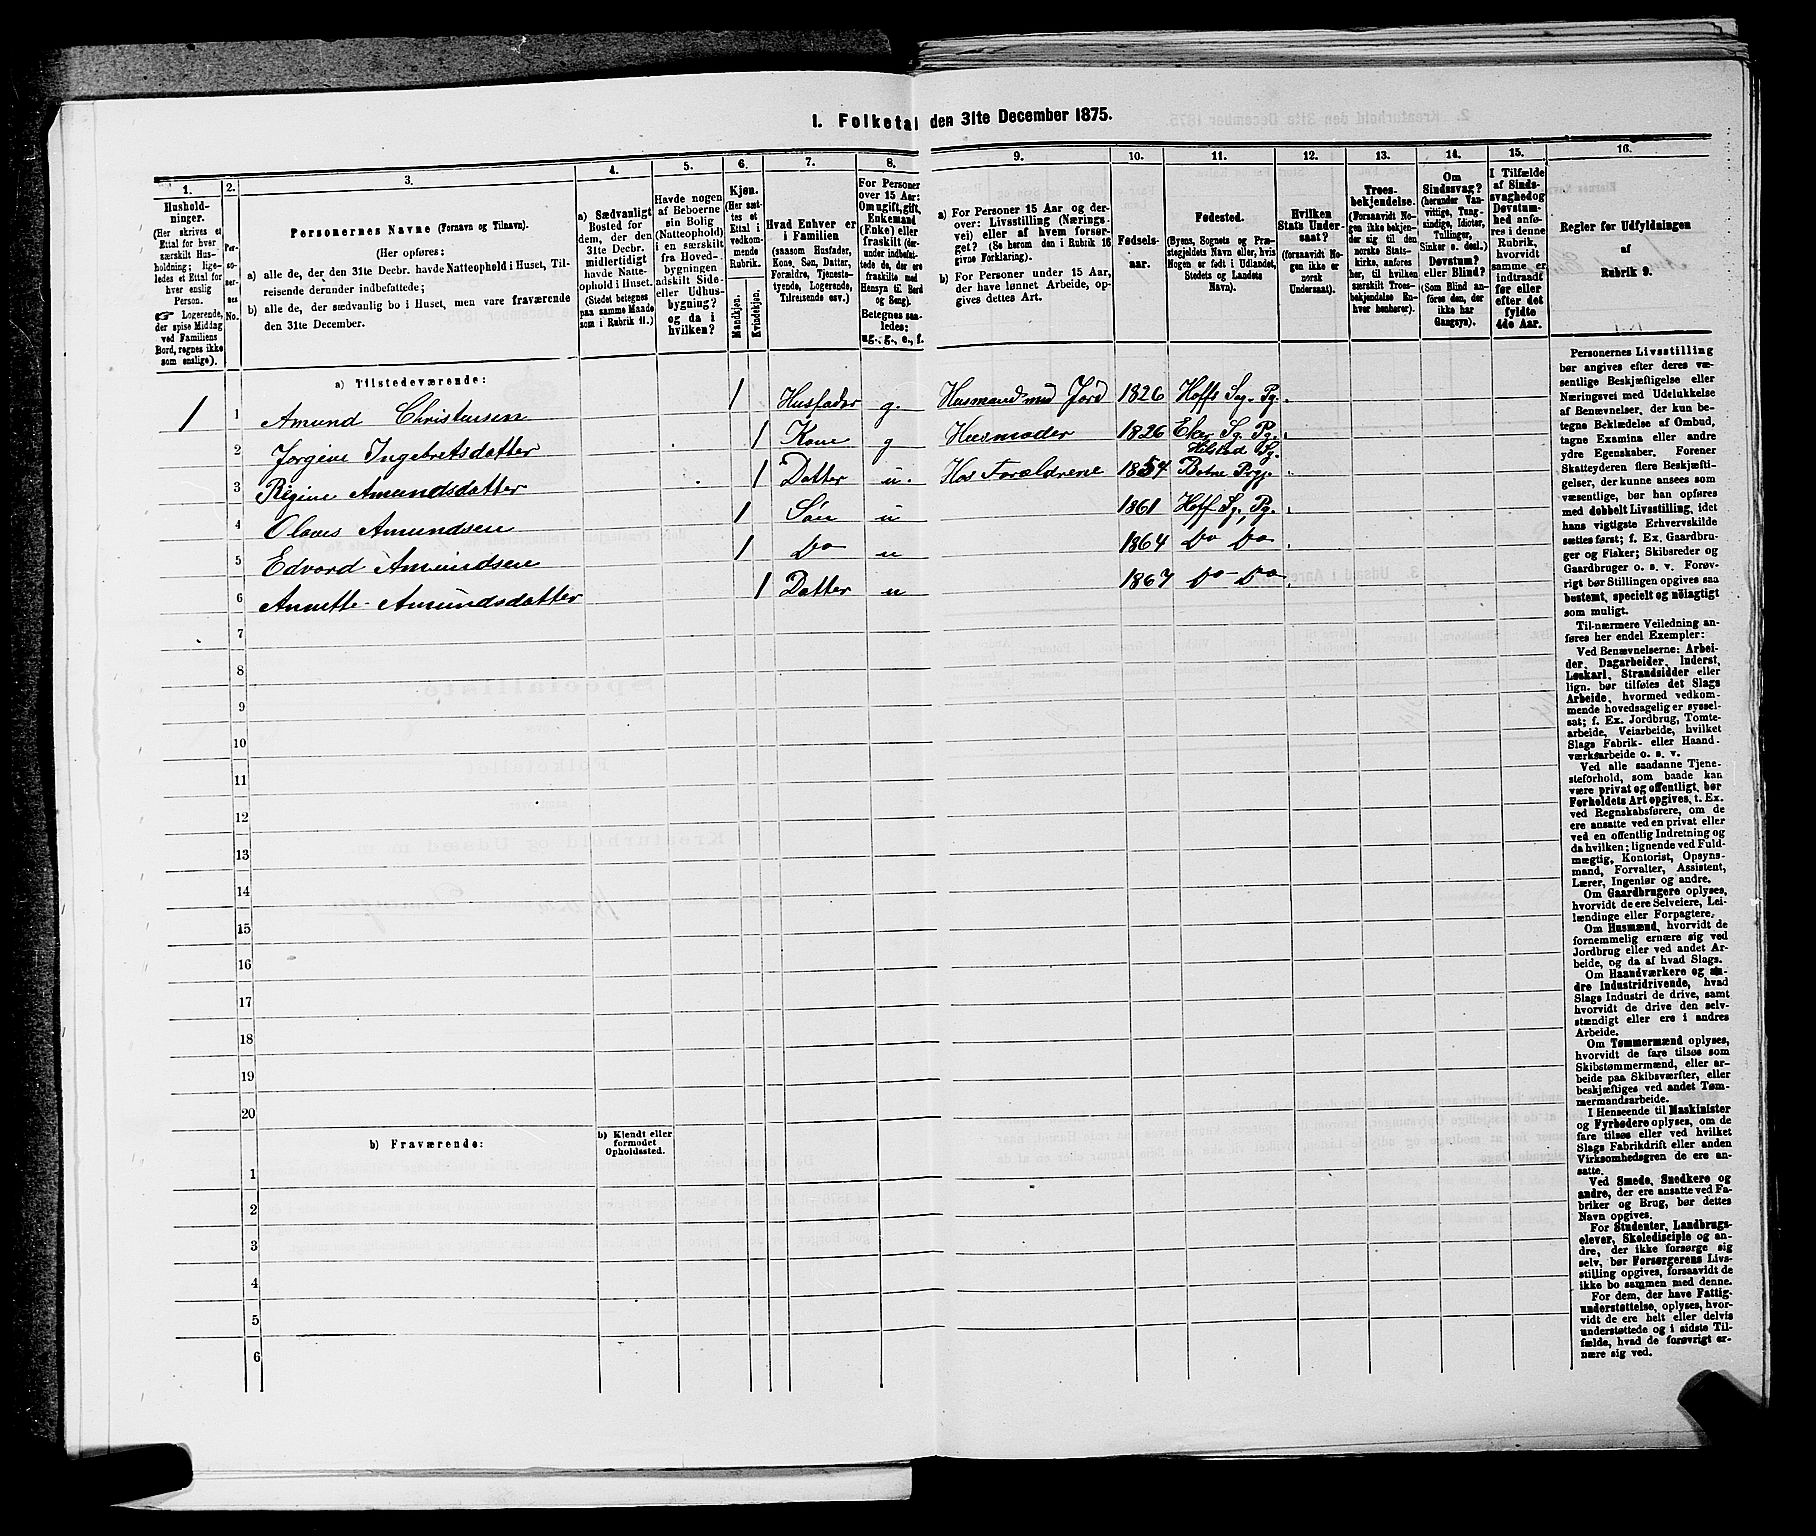 I. Folketal den 31te December 1875.
1. 2. 3. 4. 5. 6. 7. 8. 9. 10. 11. 12. 13. 14. 15. 16.
Hushold-
ninger.
(Her skrives et
Ettal for hver
særskilt Hus-
holdning; lige-
ledes et Ettal for
hver enslig
Person.
☞ Logerende,
der spise Middag
ved Familiens
Bord, regnes ikke
som enslige).
Per-
so-
ner-
nes
No.
Personernes Navne (Fornavn og Tilnavn).
(Her opføres:
a) alle de, der den 31te Decbr. havde Natteophold i Huset, Til-
reisende derunder indbefattede;
b) alle de, der sædvanlig bo i Huset, men vare fraværende
den 31te December.
a) Sædvanligt
Bosted for
dem, der den
31te Decbr.
midlertidigt
havde Natte-
ophold i Huset.
(Stedet betegnes
paa samme Maade
som i Rubrik 11.)
Havde nogen
af Beboerne
sin Bolig
(Natteophold)
i en særskilt
fra Hoved-
bygningen
adskilt Side-
eller Udhus-
bygning?
og da i
hvilken?
Kjøn.
(Her sæt-
tes et
Ettal i
vedkom-
mende
Rubrik.
Mandkjøn.
Kvindekjøn.
Hvad Enhver er
i Familien
(saasom Husfader,
Kone, Søn, Datter,
Forældre, Tjeneste-
tyende, Logerende,
Tilreisende osv.)
For Personer
over 15 Aar:
Om ugift, gift,
Enkemand
(Enke) eller
fraskilt (der-
under indbefat-
tede de, der ere
fraskilte med
Hensyn til Bord
og Seng).
Betegnes saa-
ledes:
ug., g., e., f.
a) For Personer 15 Aar og der-
over: Livsstilling (Nærings-
vei) eller af hvem forsør-
get? (Se herom den i Rubrik 16
givne Forklaring).
b) For Personer under 15 Aar,
der have lønnet Arbeide, op-
gives dettes Art.
Fødsels-
aar.
Fødested.
(Byens, Sognets og Præ-
stegjeldets Navn eller, hvis
Nogen er født i Udlandet,
Stedets og Landets
Navn).
Hvilken
Stats Under-
saat?
(forsaavidt No-
gen ikke er
norsk
Undersaat).
Troes-
bekjendelse.
(Forsaavidt No-
gen ikke bekjen-
der sig til den
norske Stats-
kirke, anføres
her, til hvilken
særskilt Troes-
bekjendelse En-
hver henhører).
Om
Sindssvag?
(herunder Van-
vittige, Tung-
sindige, Idioter,
Tullinger,
Sinker o. desl.)
Døvstum?
eller Blind?
(Som Blind an-
føres den, der
ikke har
Gangsyn).
I Tilfælde
af Sinds-
svaghed og
Døvstum-
hed anfø-
res i denne
Rubrik,
hvorvidt
samme er
indtraadt
før eller
efter det
fyldte
4de Aar.
Regler for Udfyldningen
af
Rubrik 9.
a) Tilstedeværende:
1 1 Amund Christensen 1 Husfader g. Husmand med Jord 1826 Hoffs Sg. Pg.
2 Jørgine Ingebretsdatter 1 Kone g Husmoder 1826 Eker Sg. Pg.
Hilstad Sg.
3 Regine Amundsdatter 1 Datter u. Hos Forældrene 1854 Botne Prgj.
4 Olaves Amundsen 1 Søn u 1861 Hoff Sg., Pg.
5 Edvard Amundsen 1 Do u 1864 Do Do
6 Annette Amundsdatter 1 Datter u 1867 Do Do
7
8
9
10
11
12
13
14
15
16
17
18
19
20
b) Fraværende:
b) Kjendt eller
formodet
Opholdssted.
1
2
3
4
5
6
Personernes Livsstilling
bør angives efter deres væ-
sentlige Beskjæftigelse eller
Næringsvei med Udelukkelse
af Benævnelser, der kun be-
tegne Beklædelse af Ombud,
tagne Examina eller andre
ydre Egenskaber. Forener
Skatteyderen flere Beskjæfti-
gelser, der kunne ansees som
væsentlige, bør han opføres
med dobbelt Livsstilling, idet
hans vigtigste Erhvervskilde
sættes først; f. Ex. Gaardbru-
ger og Fisker; Skibsreder og
Gaardbruger o. s. v. Forøv-
rigt bør Stillingen opgives saa
bestemt, specielt og nöiagtigt
som muligt.
Til nærmere Veiledning an-
føres her endel Exempler:
Ved Benævnelserne: Arbei-
der, Dagarbeider, Inderst,
Løskarl, Strandsidder eller
lign. bør tilføies det Slags
Arbeide, hvormed vedkom-
mende hovedsagelig er syssel-
sat; f. Ex. Jordbrug, Tomte-
arbeide, Veiarbeide, hvilket
Slags Fabrik- eller Haand-
værksarbeide o. s. v.
Ved alle saadanne Tjene-
steforhold, som baade kan
være privat og offentligt, bør
Forholdets Art opgives, t. Ex.
ved Regnskabsførere, om de
ere ansatte ved en privat eller
ved en offentlig Indretning og
da hvilken; lignende ved Fuld-
mægtig, Kontorist, Opsyns-
mand, Forvalter, Assistent,
Lærer, Ingeniør og andre.
Om Gaardbrugere oplyses,
hvorvidt de ere Selveiere, Lei-
lændinge eller Forpagtere.
Om Husmænd, hvorvidt de
fornemmelig ernære sig ved
Jordbrug eller ved andet Ar-
beide, og da af hvad Slags.
Om Haandværkere og an-
dre Industridrivende, hvad
Slags Industri de drive, samt
hvorvidt de drive den selv-
stændigt eller ere i andres
Arbeide.
Om Tømmermænd oplyses,
hvorvidt de fare tilsøs som
Skibstømmermænd, eller ar-
beide paa Skibsværfter, eller
beskjæftiges ved andet Tøm-
mermandsarbeide.
I Henseende til Maskinister
og Fyrbødere oplyses, om de
fare tilsøs eller ved hvilket
Slags Fabrikdrift eller anden
Virksomhedsgren de ere an-
satte.
Ved Smede, Snedkere og
andre, der ere ansatte ved Fa-
briker og Brug, bør dettes
Navn opgives.
For Studenter, Landbrugs-
elever, Skoledisciple og an-
dre, der ikke forsørge sig
selv, bør Forsørgerens Livs-
stilling opgives, forsaavidt de
ikke bo sammen med denne.
For dem, der have Fattig-
understøttelse, oplyses, hvor-
vidt de ere helt eller delvis
understøttede og i sidste Til-
fælde, hvad de forøvrigt er-
nære sig ved.